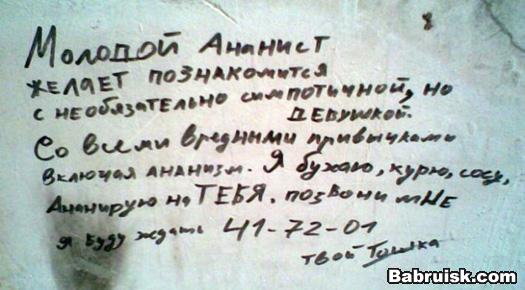 Молодой Ананист
желает познакомится
с необязательно симпотичной, но
девушкой.
Со всеми вредными привычками
включая ананизм. Я бухаю, курю, сосу,
Ананирую на ТЕБЯ. позвони мне
я буду ждать 41-72-01
твой Тошка
Babruisk.com